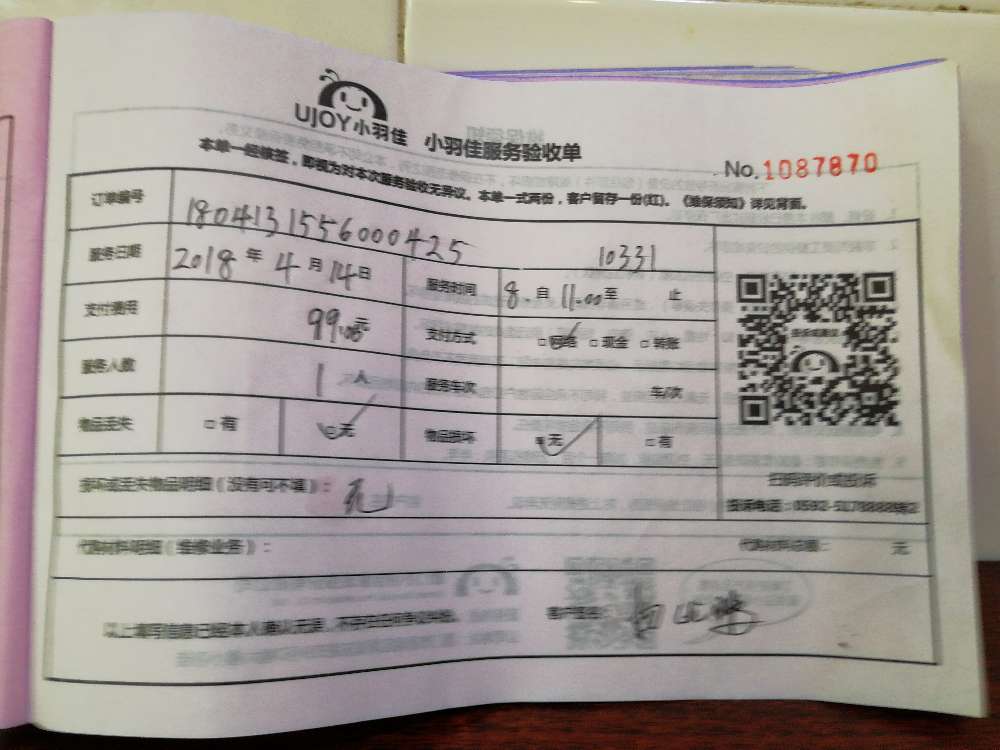 UJOY小羽佳 小羽佳服务验收单
No.1087870
本单一经核签，即视为对本次服务验收无异议。本单一式两份，客户留存一份(红)。《维保须知》详见背面。
订单编号 1804131556000425 10331
服务日期 2018年4月14日 服务时间 8.自11.00至 止
支付费用 99.00元 支付方式 □网络 □现金 □转账
服务人数 1人 服务车次 车/次
物品丢失 □有 □无 物品损坏 □无 □有
扫码评价或投诉
损坏或丢失物品明细（没有可不填）：无
投诉电话：0592-5178888转2
代购材料明细（维修业务）： 代购材料总额： 元
以上填写信息已经本人确认无误，不存在任何争议纠纷。 客户签名：